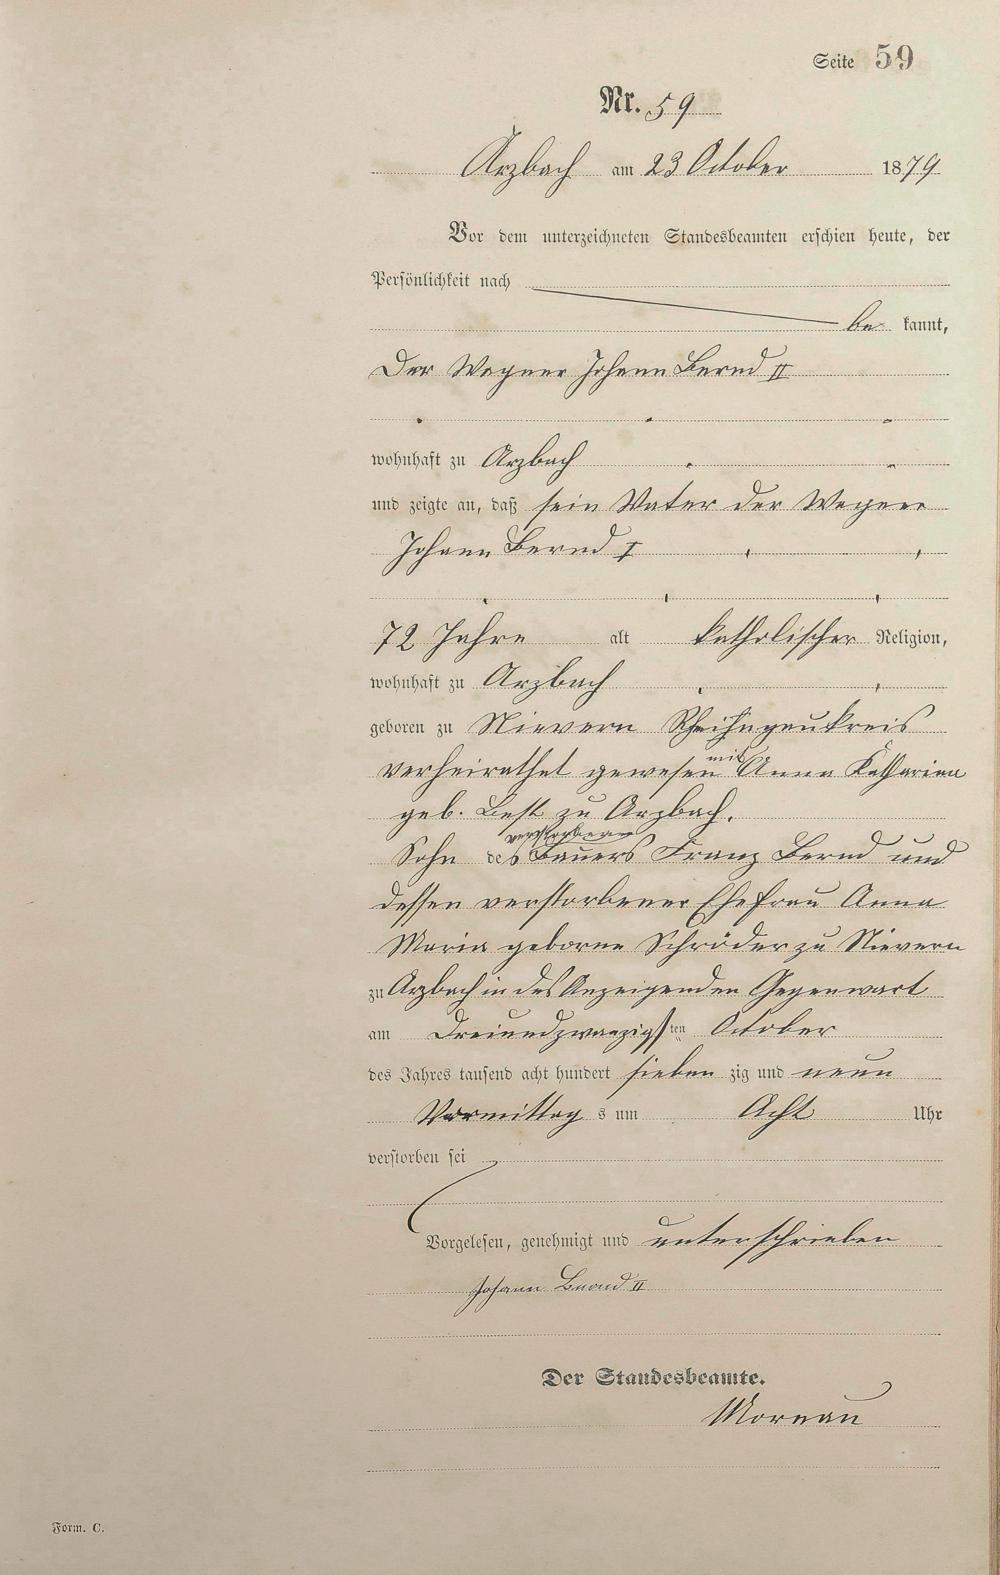 Seite 59
Nr. 59
Arzbach am 23 October 1879
Vor dem unterzeichneten Standesbeamten erschien heute, der
Persönlichkeit nach
be kannt,
Der Wagner Johann Bernd II
wohnhaft zu Arzbach
und zeigte an, daß sein Vater der Wagner
Johann Bernd I
72 Jahre alt katholischer Religion,
wohnhaft zu Arzbach
geboren zu Nievern Rheingaukreis
verheirathet gewesen mit Anna Katharina
geb. Best zu Arzbach.
Sohn des verstorbenen Bauers Franz Bernd und
dessen verstorbener Ehefrau Anna
Maria geborne Schröder zu Nievern
zu Arzbach in des Anzeigenden Gegenwart
am Dreiundzwanzigsten October
des Jahres tausend acht hundert sieben zig und neun
Vormittag s um Acht Uhr
verstorben sei
Vorgelesen, genehmigt und unterschrieben
Johann Bernd II
Der Standesbeamte.
Mornau
Form. C.